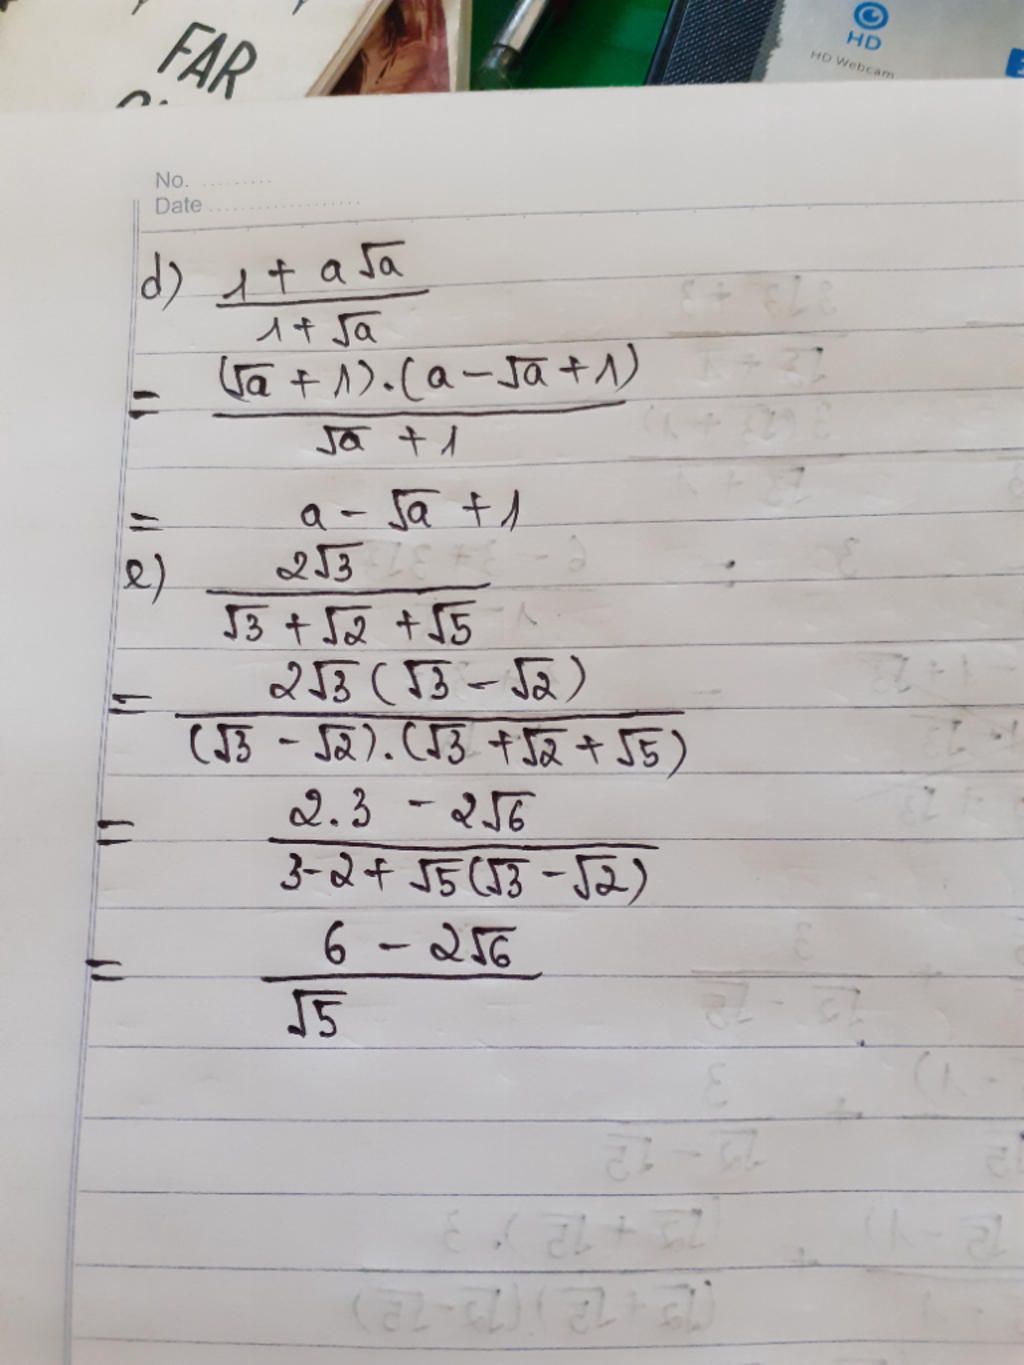 FAR
HD
HD Webcam
No. .........
Date ...................
d) (1 + a√a) / (1 + √a)
= ((√a + 1).(a - √a + 1)) / (√a + 1)
= a - √a + 1
e) 2√3 / (√3 + √2 + √5)
= 2√3(√3 - √2) / ((√3 - √2).(√3 + √2 + √5))
= (2.3 - 2√6) / (3-2+ √5(√3 - √2))
= (6 - 2√6) / √5